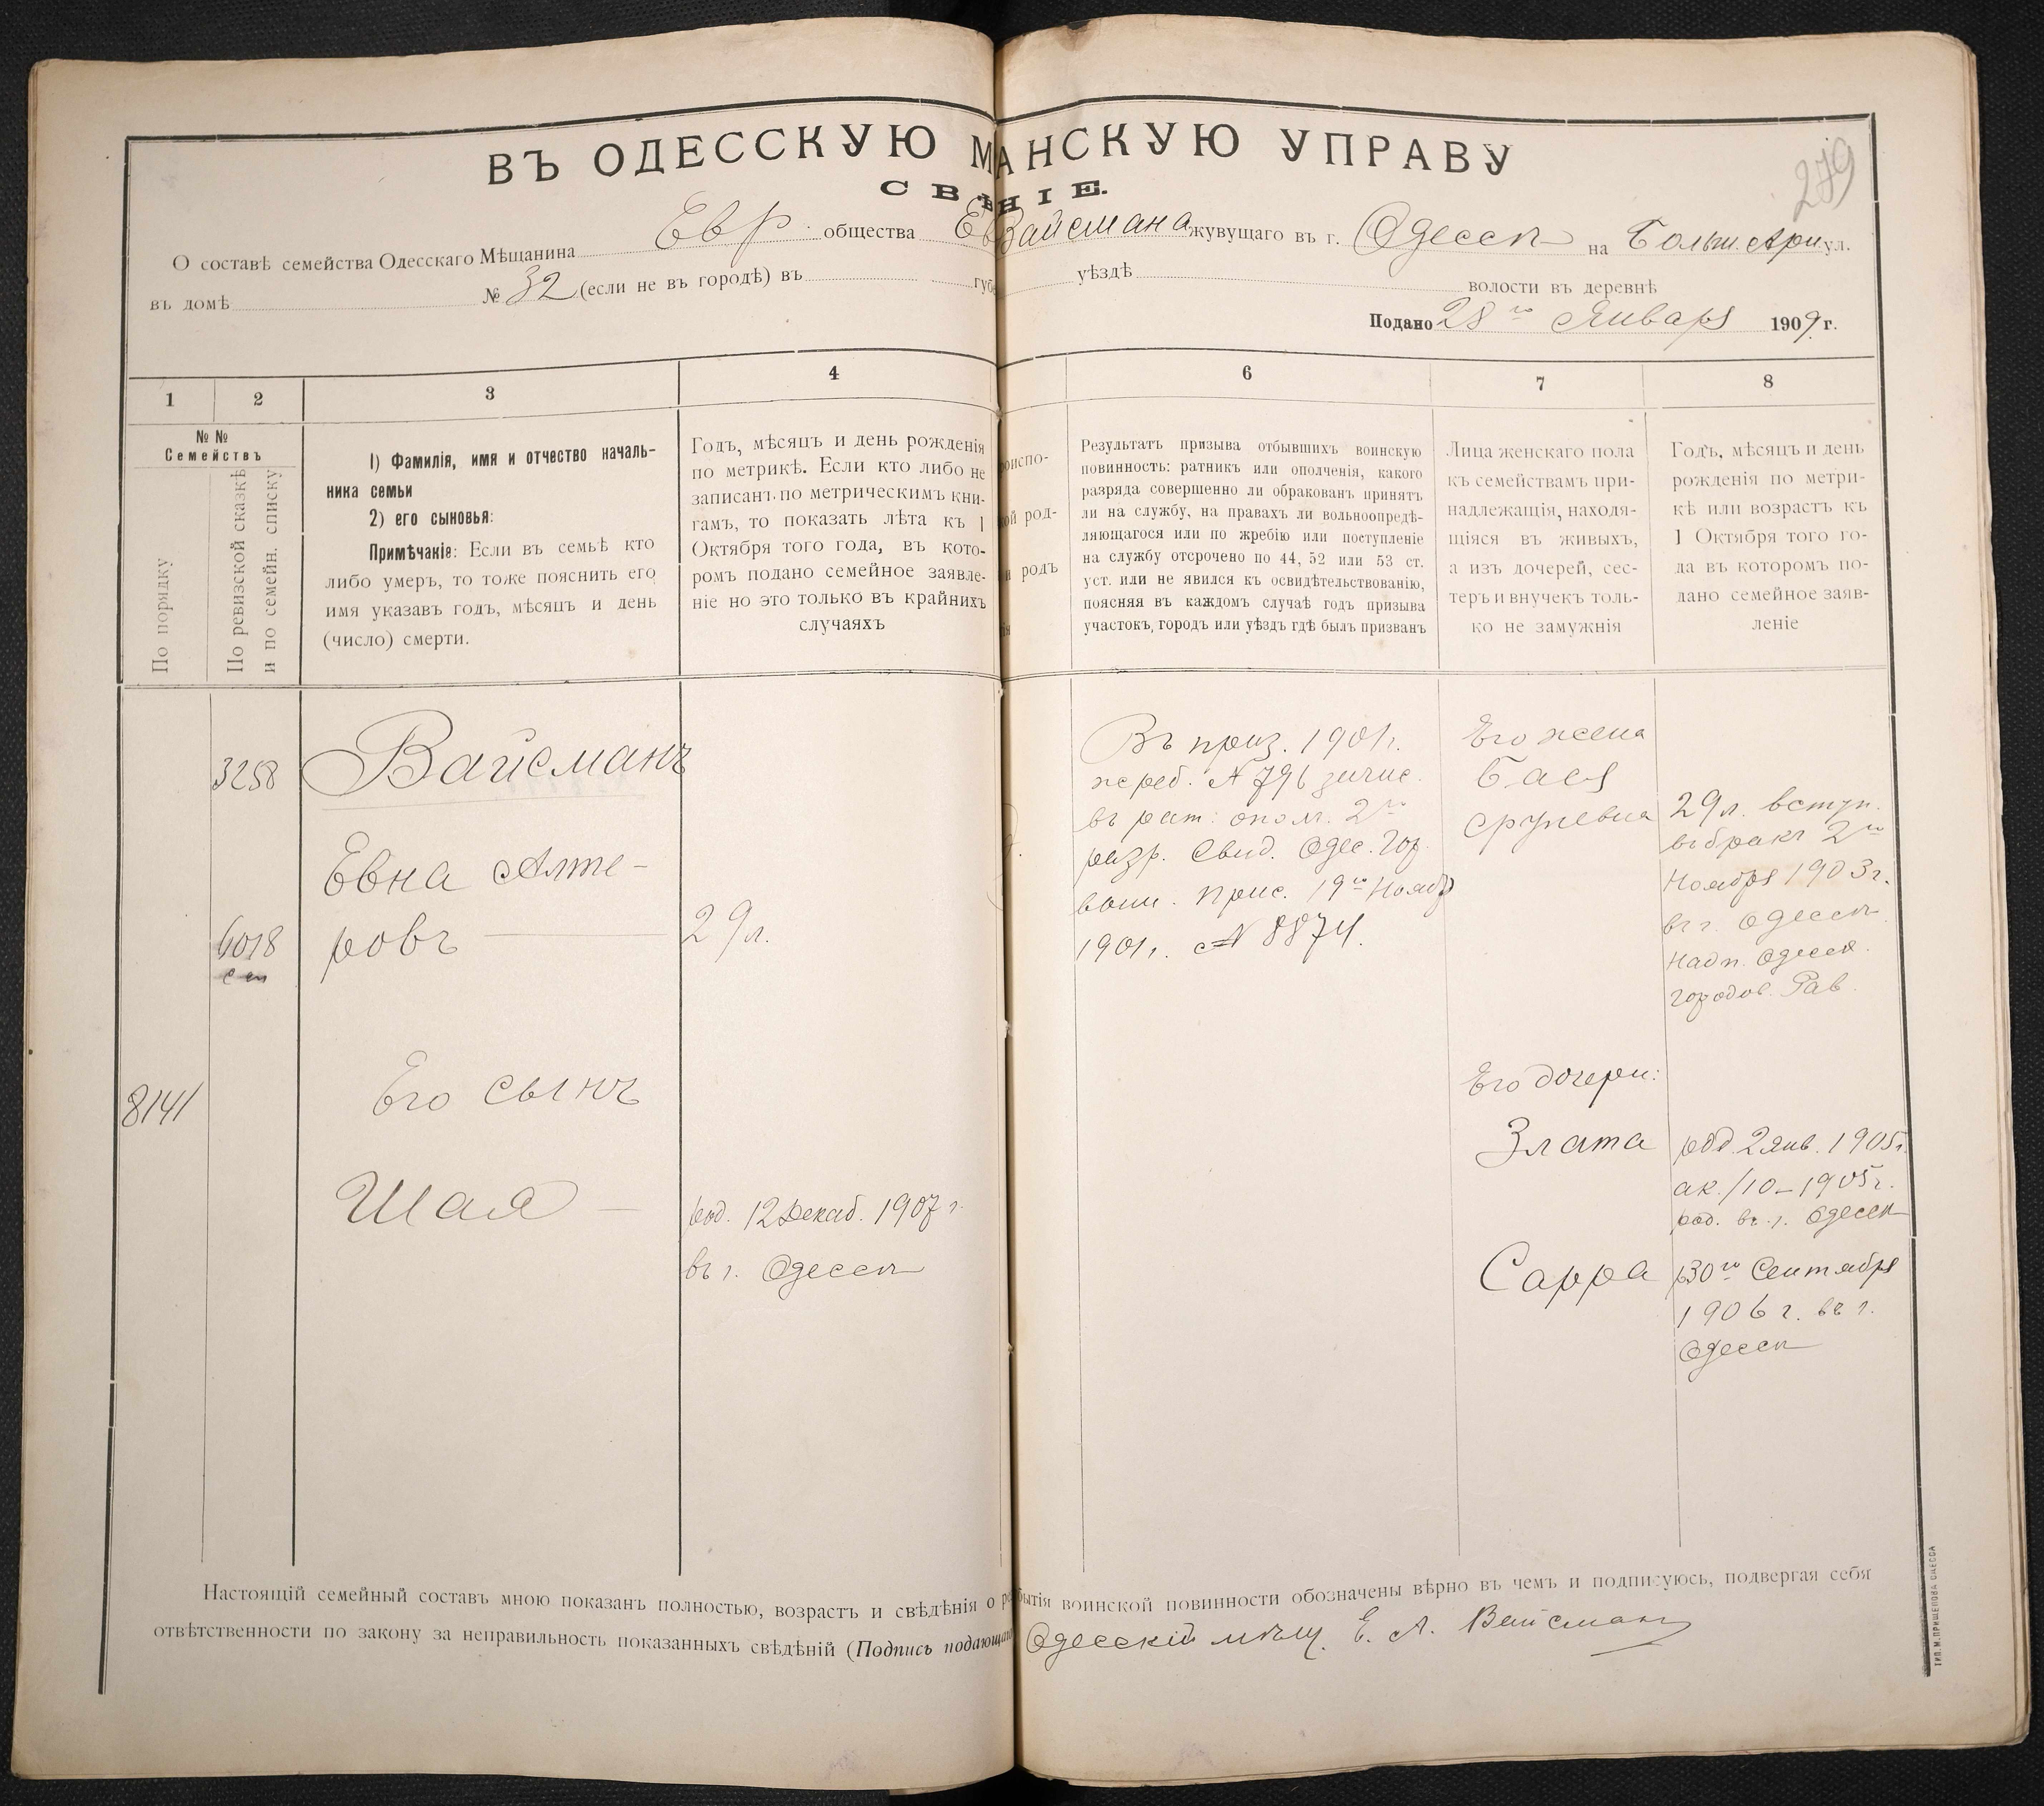 279
ВЪ ОДЕССКУЮ М АНСКУЮ УПРАВУ
СВѢ НІЕ.
О составѣ семейства Одесскаго Мѣщанина Евр. общества Ев Вайсмана жувущаго въ г. Одессѣ на Больш. Арн ул.
въ домѣ № 32 (если не въ городѣ) въ губе уѣздѣ волости въ деревнѣ
Подано 28го Января 1909 г.
1 2 3 4 6 7 8
№ №
Семействъ
По порядку
По ревизской сказкѣ
и по семейн. списку
1) Фамилія, имя и отчество началь-
ника семьи
2) его сыновья:
Примѣчаніе: Если въ семьѣ кто
либо умеръ, то тоже пояснить его
имя указавъ годъ, мѣсяцъ и день
(число) смерти.
Годъ, мѣсяцъ и день рожденія
по метрикѣ. Если кто либо не
записанъ по метрическимъ кни-
гамъ, то показать лѣта къ 1
Октября того года, въ кото-
ромъ подано семейное заявле-
ніе но это только въ крайнихъ
случаяхъ
роиспо-
кой род-
и родъ
Результатъ призыва отбывшихъ воинскую
повинность: ратникъ или ополченія, какого
разряда совершенно ли обракованъ принятъ
ли на службу, на правахъ ли вольноопредѣ-
ляющагося или по жребію или поступленіе
на службу отсрочено по 44, 52 или 53 ст.
уст. или не явился къ освидѣтельствованію,
поясняя въ каждомъ случаѣ годъ призыва
участокъ, городъ или уѣздъ гдѣ былъ призванъ
Лица женскаго пола
къ семействамъ при-
надлежащія, находя-
щіяся въ живыхъ,
а изъ дочерей, сес-
теръ и внучекъ толь-
ко не замужнія
Годъ, мѣсяцъ и день
рожденія по метри-
кѣ или возрастъ къ
1 Октября того го-
да въ которомъ по-
дано семейное заяв-
леніе
3258
Вайсманъ
Евна Алте-
6018
ровъ
29 л.
8141
Его сынъ
Шая
род. 12 Декаб. 1907 г.
въ г. Одессѣ
Въ приз. 1901 г.
жреб. № 796 зачис.
въ рат. опол. 2го
разр. Свид. Одес. Гор.
воин. прис. 19го Нояб
1901 г. № 8874.
Его жена
Бася
Срулевна
29 л. вступ.
въ бракъ 2го
Ноября 1903 г.
въ г. Одессѣ
Надп. Одесск.
городов. Рав.
Его дочери:
Злата
род. 2 Янв. 1905 г.
ак. /10-1905 г.
род. въ г. Одессѣ
Сарра
р. 30го Сентября
1906 г. въ г.
Одессѣ
Настоящій семейный составъ мною показанъ полностью, возрастъ и свѣдѣнія о ре бытія воинской повинности обозначены вѣрно въ чемъ и подписуюсь, подвергая себя
отвѣтственности по закону за неправильность показанныхъ свѣдѣній (Подпись подающаго Одесскій мѣщ. Е. А. Вайсманъ
ТИП. М. ПРИЩЕПОВА ОДЕССА